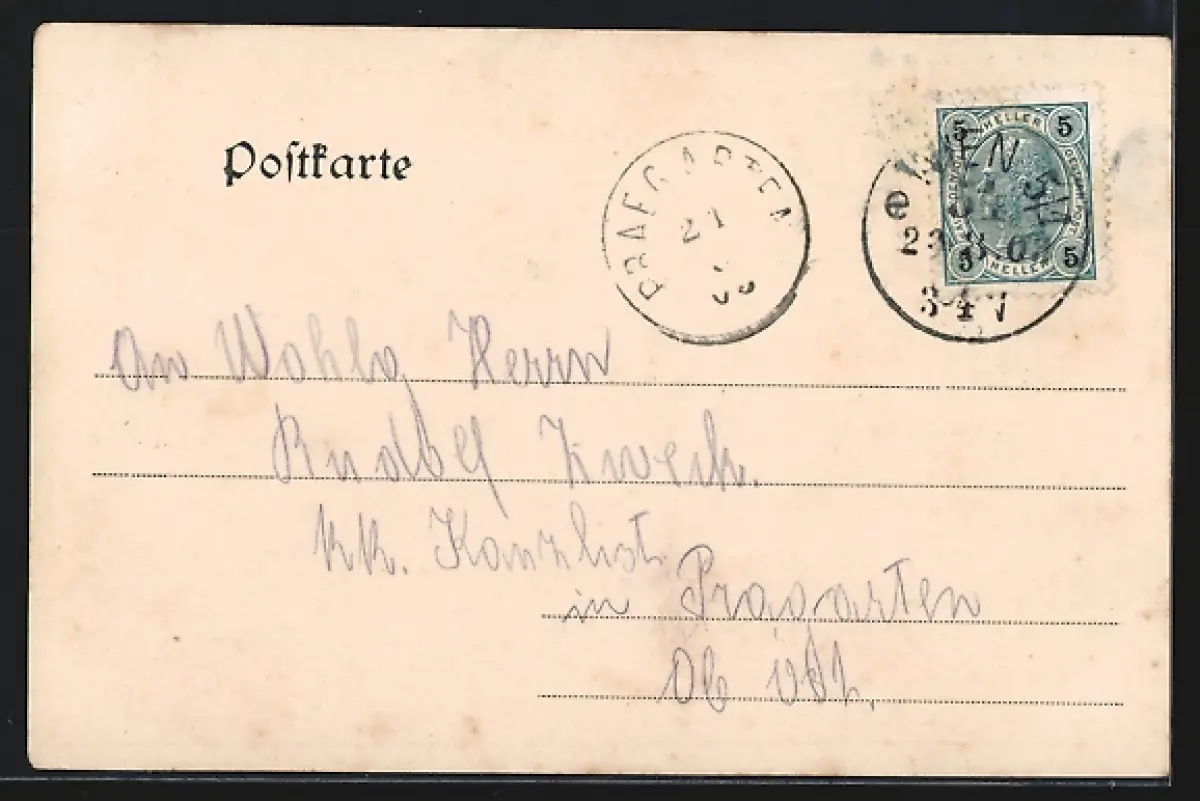 Postkarte
PRAEGARTEN
21
03
WIEN 5/1
23.3.03
3-4 V
5 HELLER 5
5 HELLER 5
An Wohlg. Herrn
Rudolf Zweck.
kk. Kanzlist
in Pragarten
Ob öst.